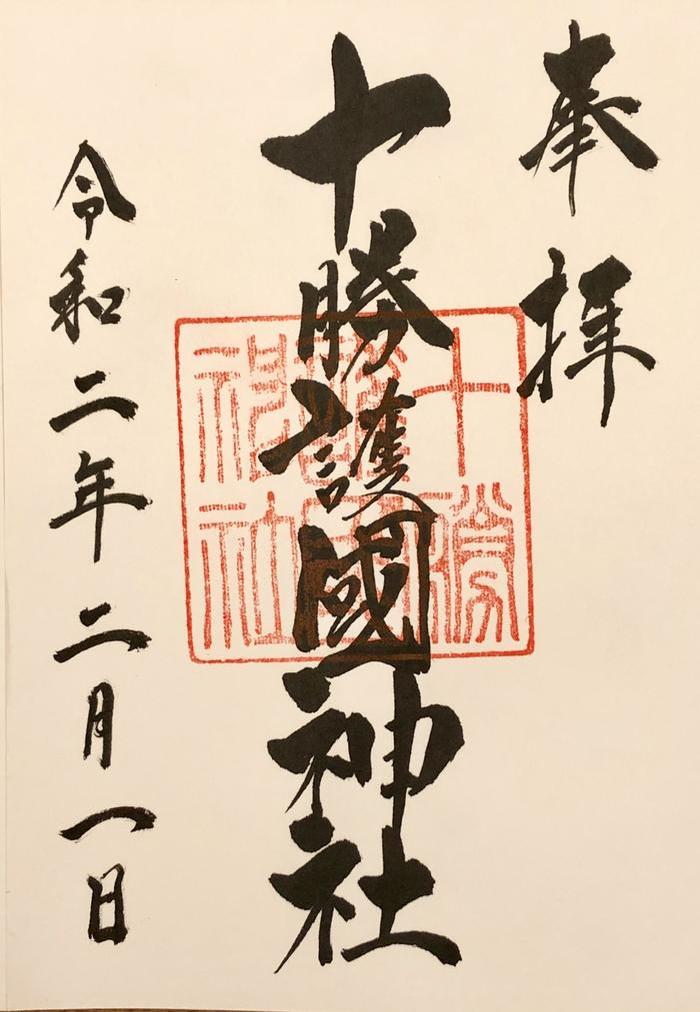 奉拝
十勝護國神社
十勝護國神社
令和二年二月一日